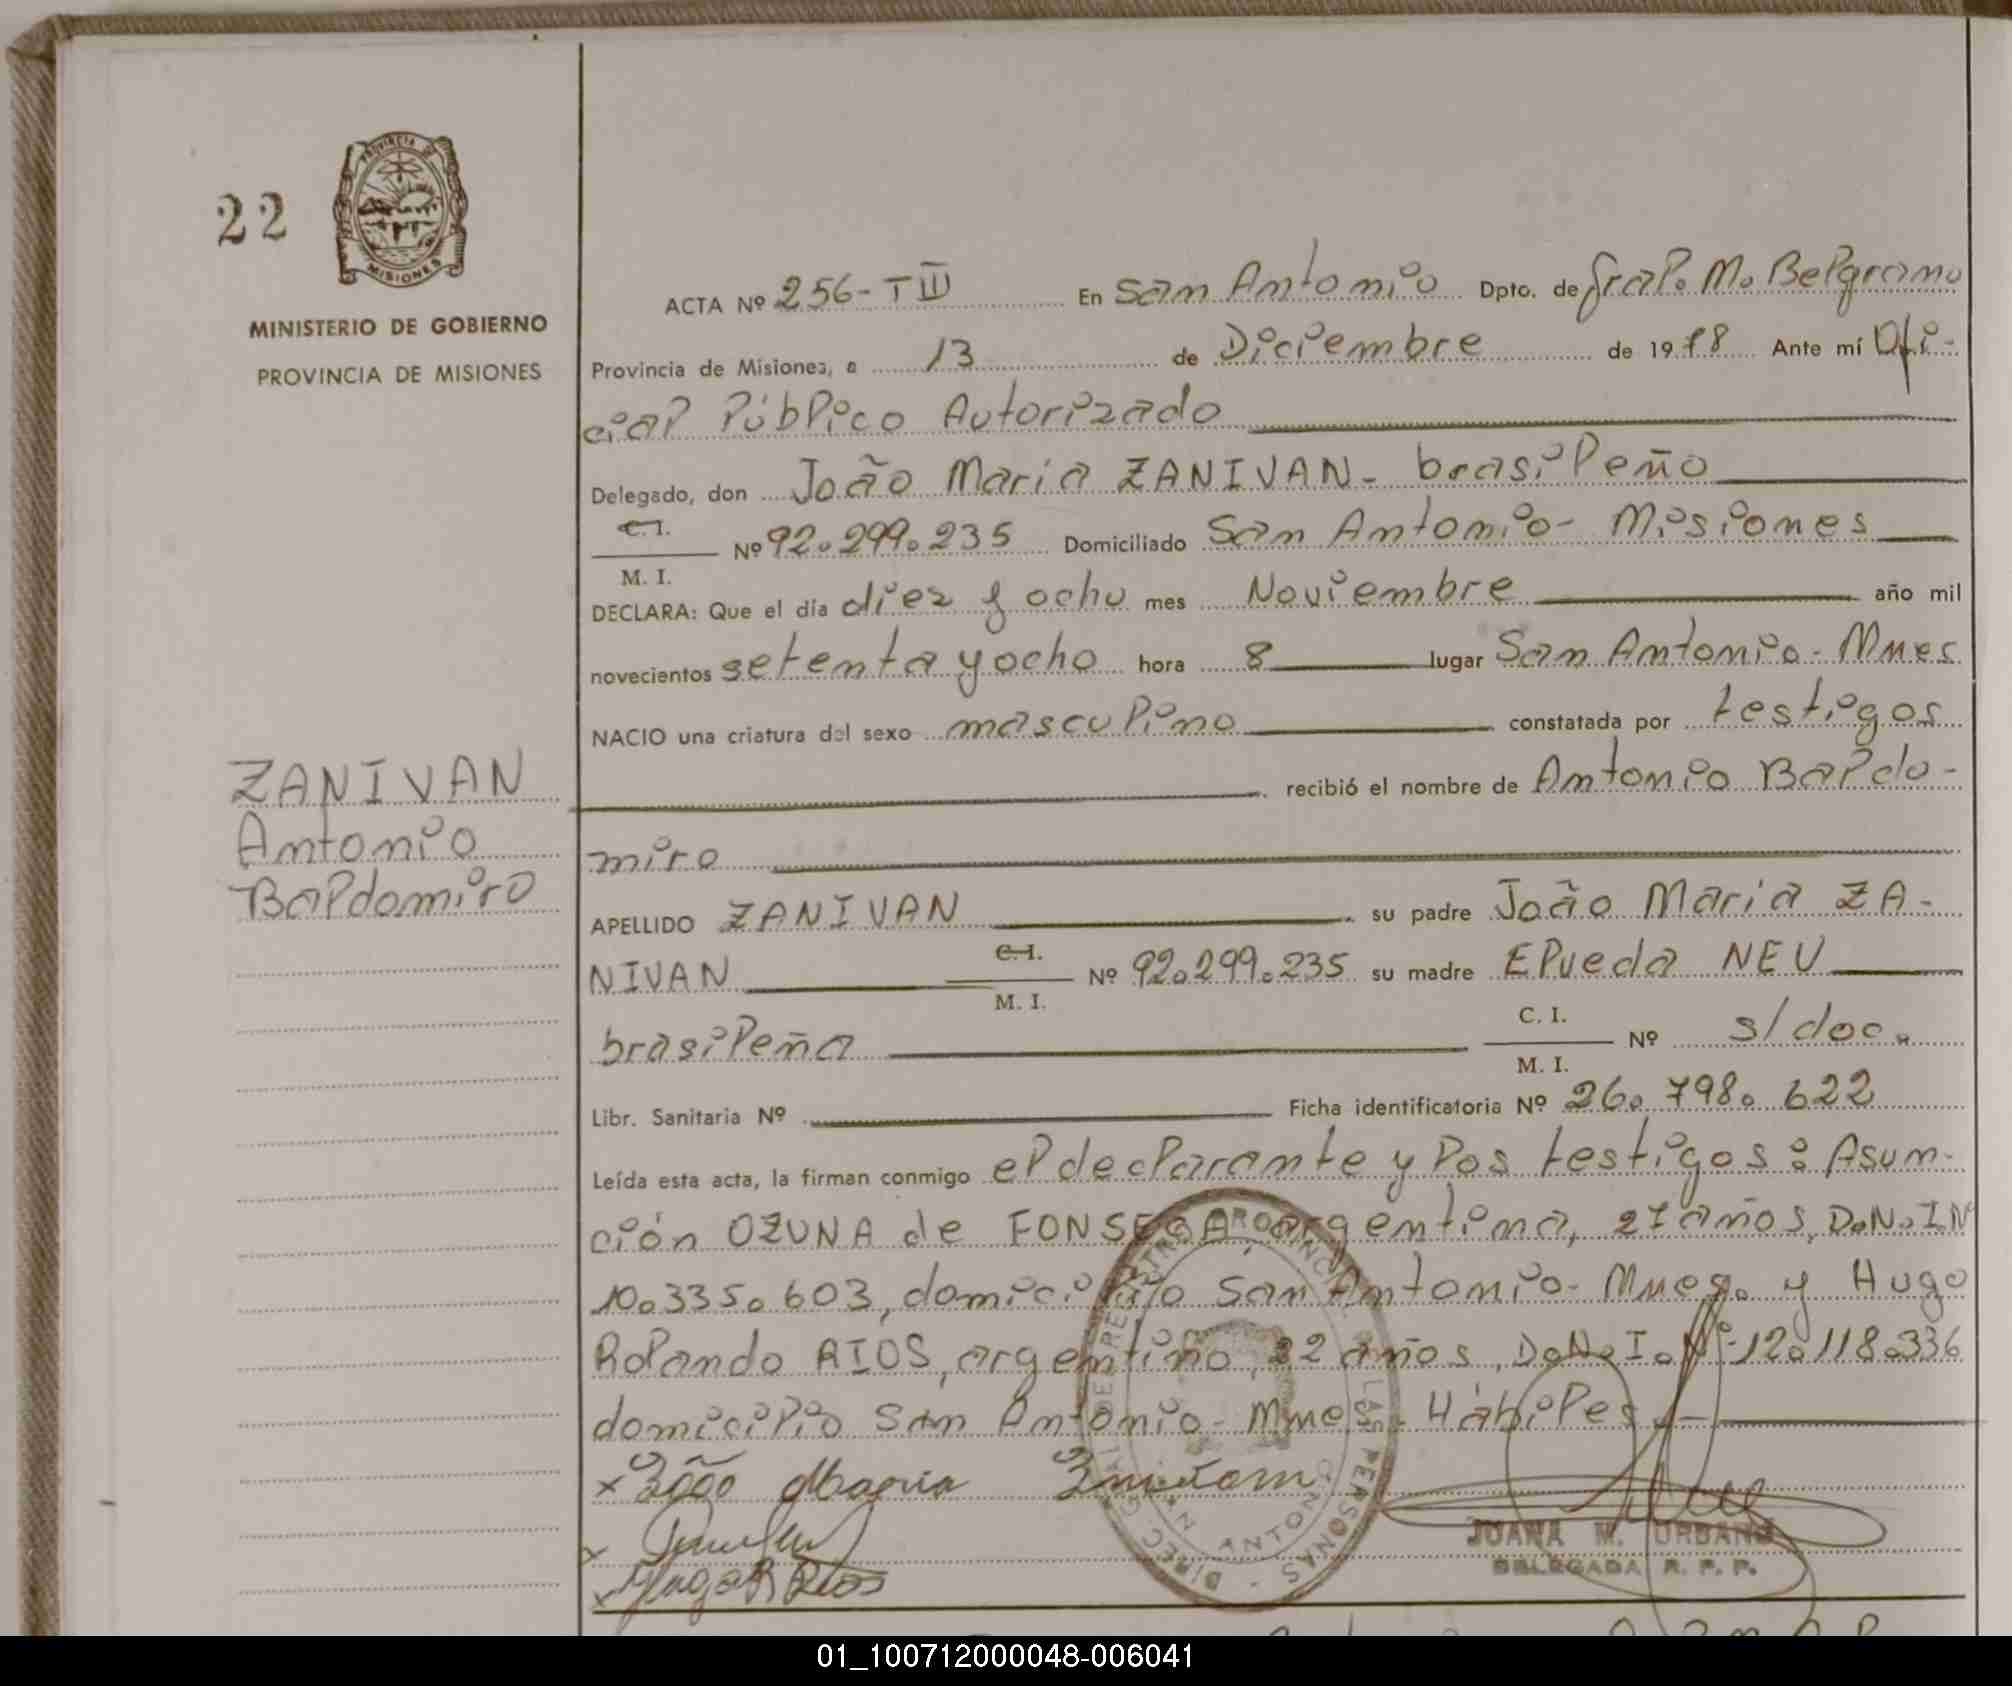 22
PROVINCIA DE
MISIONES
MINISTERIO DE GOBIERNO
PROVINCIA DE MISIONES
ZANIVAN
Antonio
Baldomiro
ACTA Nº 256-T III En San Antonio Dpto. de Gral. M. Belgrano
Provincia de Misiones, a 13 de Diciembre de 1978 Ante mí Ofi-
cial Público Autorizado
Delegado, don João Maria ZANIVAN- brasileño
C.I.
M. I.
Nº 92.299.235 Domiciliado San Antonio- Misiones
DECLARA: Que el día diez y ocho mes Noviembre año mil
novecientos setenta y ocho hora 8 lugar San Antonio- Mnes
NACIO una criatura del sexo masculino constatada por testigos
recibió el nombre de Antonio Baldo-
miro
APELLIDO ZANIVAN su padre João Maria ZA-
NIVAN C.I. M. I. Nº 92.299.235 su madre Elveda NEU
brasileña C. I. M. I. Nº s/doc.
Libr. Sanitaria Nº Ficha identificatoria Nº 26.798.622
Leída esta acta, la firman conmigo el declarante y los testigos: Asun-
ción OZUNA de FONSECA, argentina, 27 años, D.N.I.Nº
10.335.603, domicilio San Antonio- Mnes. y Hugo
Rolando RIOS, argentino, 22 años, D.N.I.Nº 12.118.336
domicilio San Antonio- Mnes.- Hábiles.-
x João Maria
x
x Hugo R Rios
DIREC. GRAL. DEL REGISTRO PROVINCIAL DE LAS PERSONAS
SAN ANTONIO
JUANA M. URBANO
DELEGADA R. P. P.
01_100712000048-006041